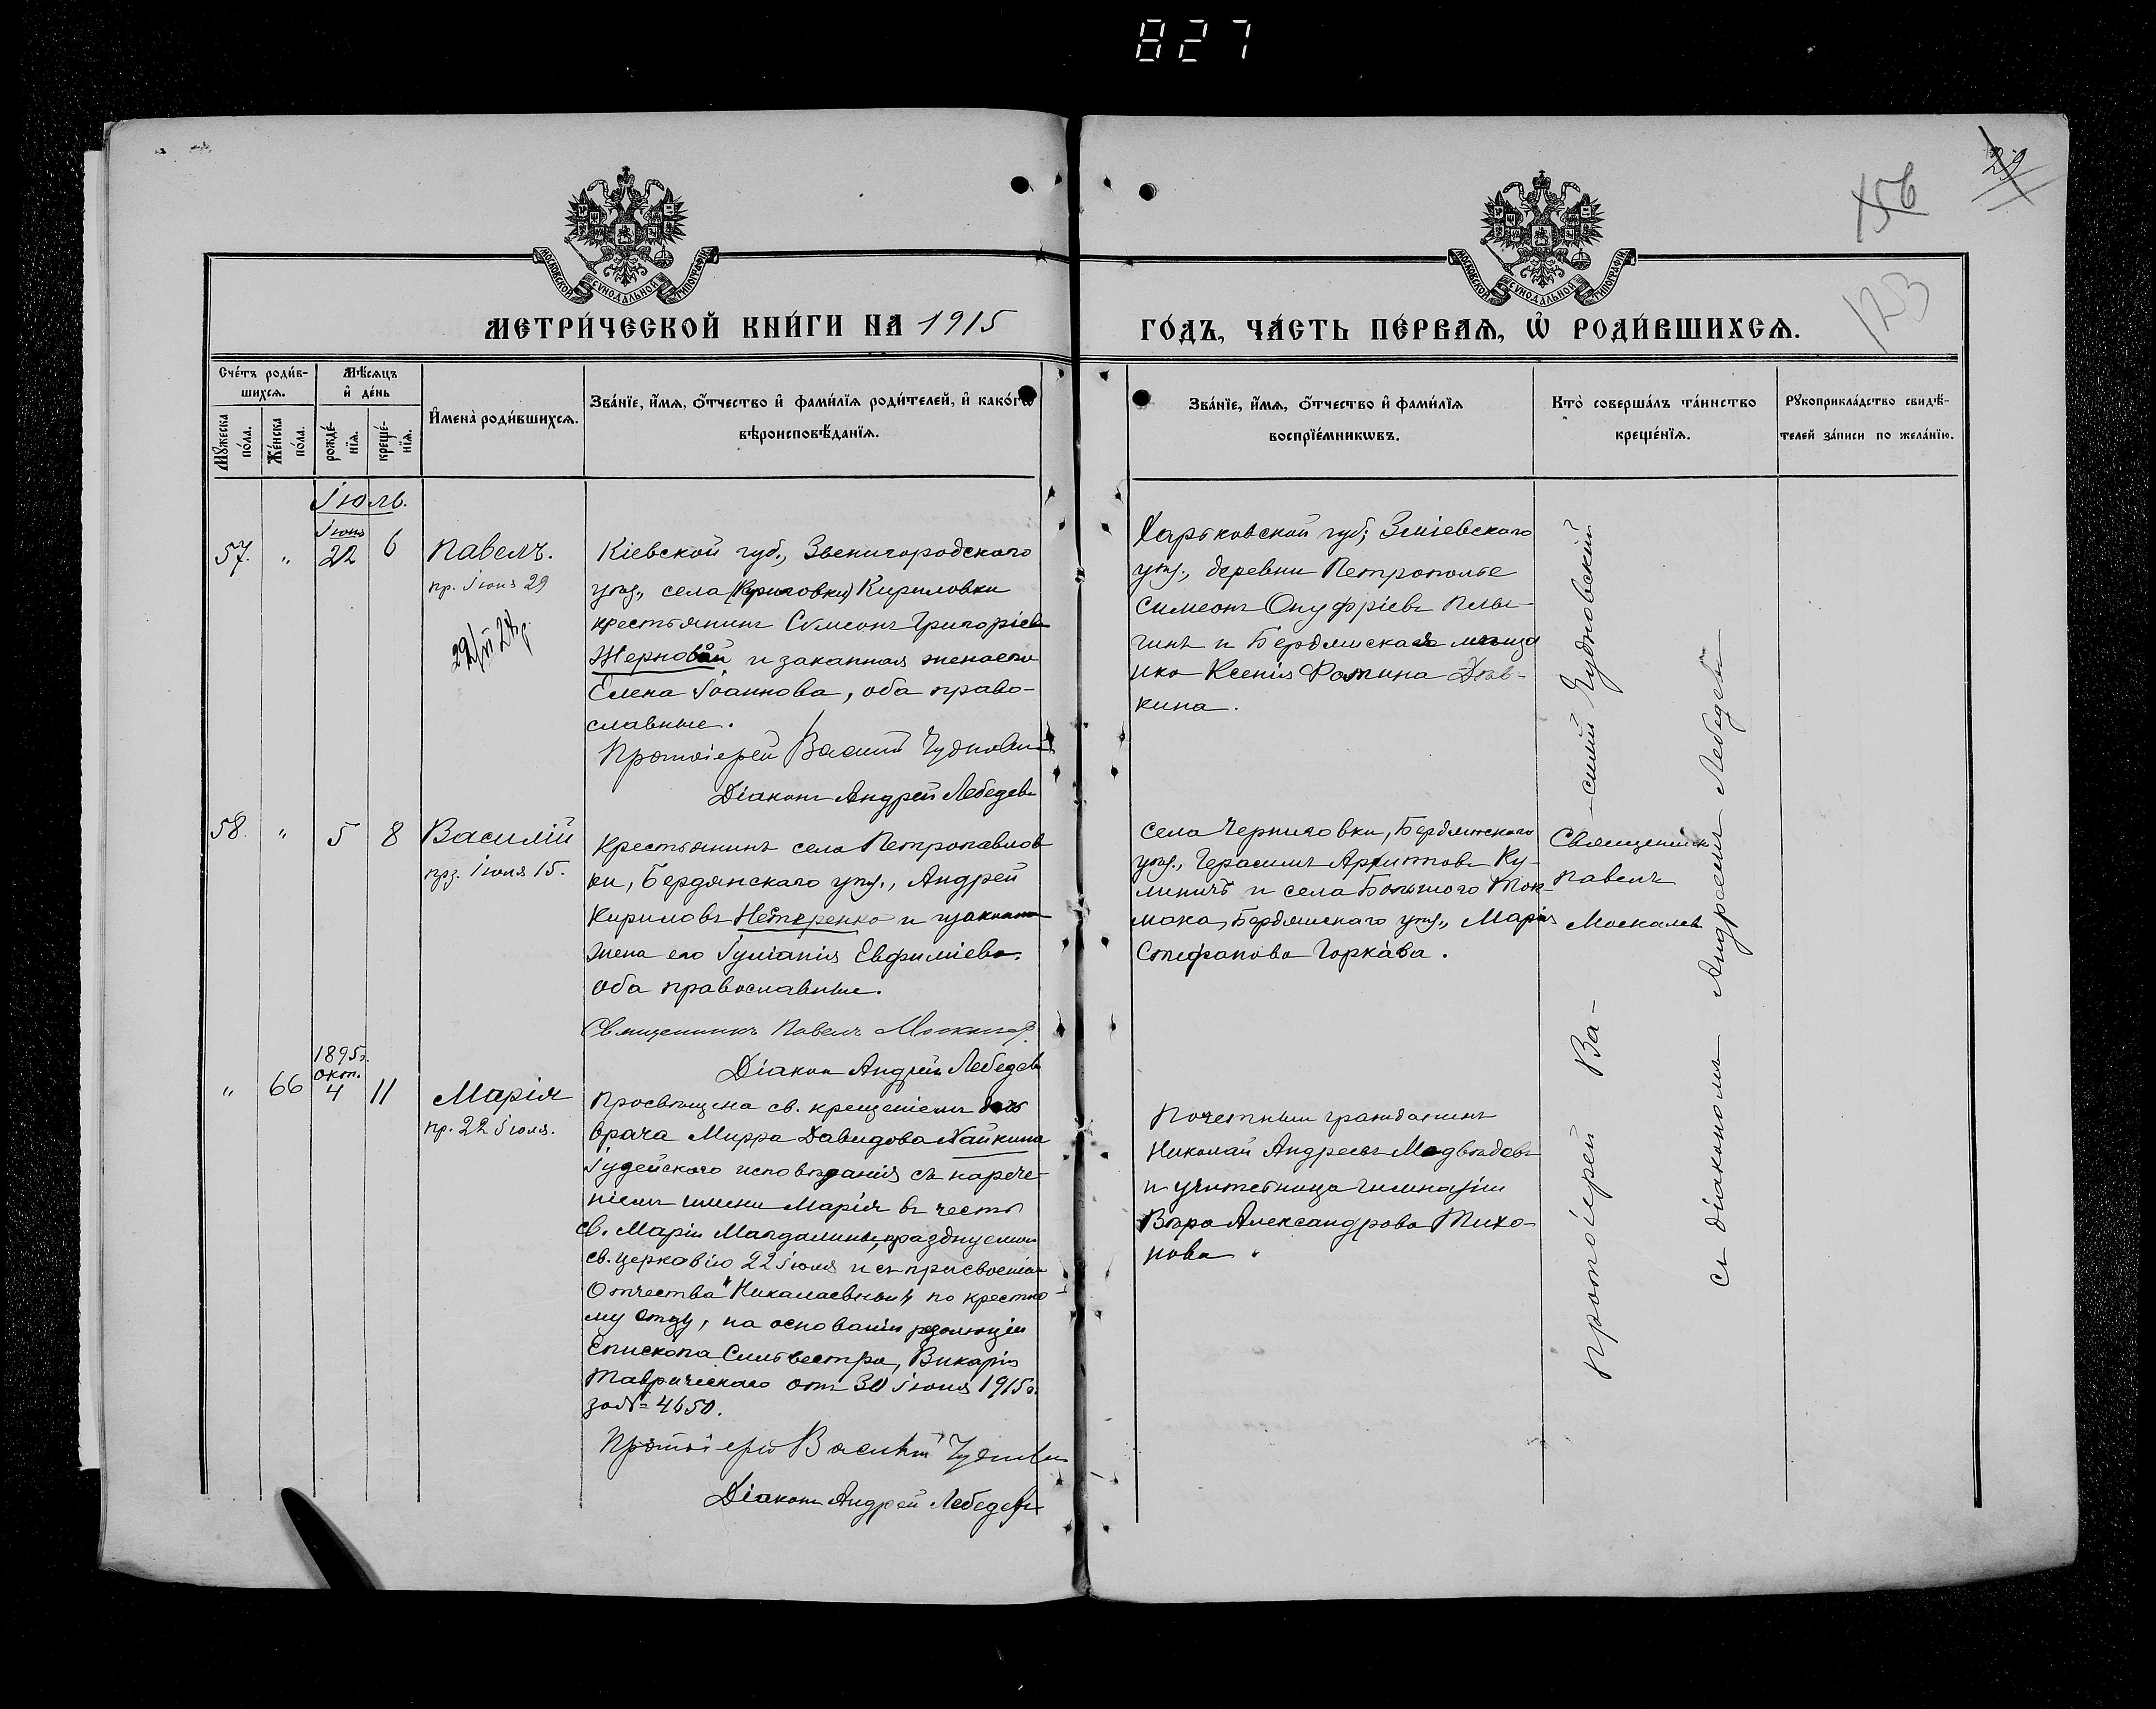 827
29
156
123
МОСКОВСКОЙ СѴНОДАЛЬНОЙ ТИПОГРАФІИ
МОСКОВСКОЙ СѴНОДАЛЬНОЙ ТИПОГРАФІИ
МЕТРИ́ЧЕСКОЙ КНИ́ГИ НА 1915
ГО́ДЪ, ЧА́СТЬ ПЕ́РВАѦ, Ѡ҆ РОДИ́ВШИХСѦ.
Сче́тъ роди́в-
шихсѧ.
Мꙋ́жеска
по́ла.
Же́нска
по́ла.
Мѣ́сѧцъ
и҆ де́нь
рожде́-
нїѧ.
креще́-
нїѧ.
И҆мена̀ роди́вшихсѧ.
Зва́нїе, и҆́мѧ, ѻ҆́тчество и҆ фами́лїѧ роди́телей, и҆ како́гѡ
вѣроисповѣ́данїѧ.
Зва́нїе, и҆́мѧ, ѻ҆́тчество и҆ фами́лїѧ
воспрїе́мникѡвъ.
Кто̀ соверша́лъ та́инство
креще́нїѧ.
Рꙋкоприкла́дство свидѣ́-
телей за́писи по жела́нїю.
Іюль.
57. " Іюня 22 6
Павелъ.
пр. Іюня 29
Кіевской губ., Звенигородскаго
уѣз., села (Кириловки) Кириловки
крестьянинъ Сѵмеонъ Григоріевъ
Жерновой и законная жена его
Елена Іоаннова, оба право-
славные.
Протоіерей Василій Чудновскій
Діаконъ Андрей Лебедевъ
Харьковской губ; Зміевскаго
уѣз., деревни Петрополье
Симеонъ Онуфріевъ
гинъ и Бердянская мѣща
нка Ксенія Фомина
кина.
58. " 5 8
Василій
прз. Іюля 15.
Крестьянинъ села Петропавлов
ки, Бердянскаго уѣз., Андрей
Кириловъ Нетеренко и законная
жена его Іуліанія Евфиміева,
оба православные.
Священникъ Павелъ Москалевъ
Діаконъ Андрей Лебедевъ
Села Черниговки, Бердянскаго
уѣз., Герасимъ Архиповъ Ку-
линичъ и села Большого Ток-
мака, Бердянскаго уѣз., Марія
Стефанова Горка́ва.
Священникъ
Павелъ
Москалевъ
" 66 1895г. окт. 4 11
Марія
пр. 22 Іюля.
Просвѣщена св. крещеніемъ дочь
врача Мирра Давидова Хайкина
Іудейскаго исповѣданія съ нарече-
ніемъ имени Марія въ честь
св. Маріи Магдалины, празднуемой
св. церковію 22 Іюля и съ присвоеніемъ
Отчества "Николаевны" по крестно
му отцу, на основаніи резолюціи
Епископа Сильвестра, Викарія
Таврическаго отъ 30 Іюня 1915г.
за № 4650.
Протоіерей Василій Чудновскій
Діаконъ Андрей Лебедевъ
Почетный гражданинъ
Николай Андреевъ Медвѣдевъ
и учительница гимназіи
Вѣра Александрова Тихо-
нова.
Протоіерей Ва-
-силій Чудновскій
съ діакономъ Андреемъ Лебедевъ